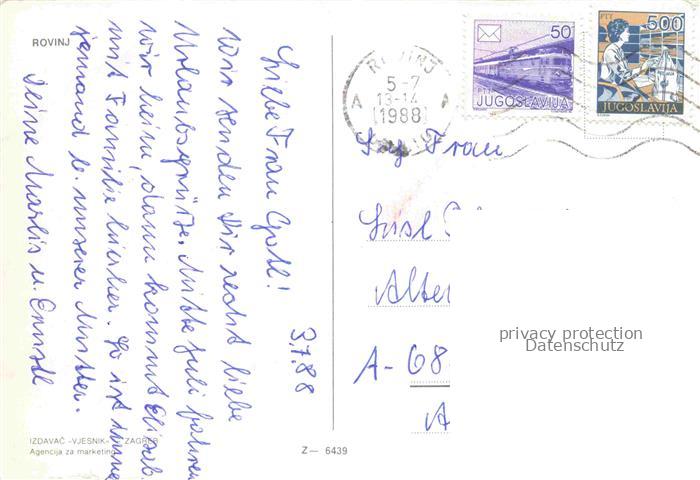 ROVINJ
3.7.88
Liebe Frau Gusti!
Wir senden Dir recht liebe
Urlaubsgrüße. Mitte Juli fahren
wir heim, dann kommt Elisab.
mit Familie hierher. So ist immer
jemand b. unserer Mutter.
Deine Marlis u. Ernstl
IZDAVAČ »VJESNIK« ZAGREB
Agencija za marketing
Z — 6439
ROVINJ
5-7
13-14
1988
A A
50
PTT
JUGOSLAVIJA
PTT 500
JUGOSLAVIJA
Frau
A-68
privacy protection
Datenschutz